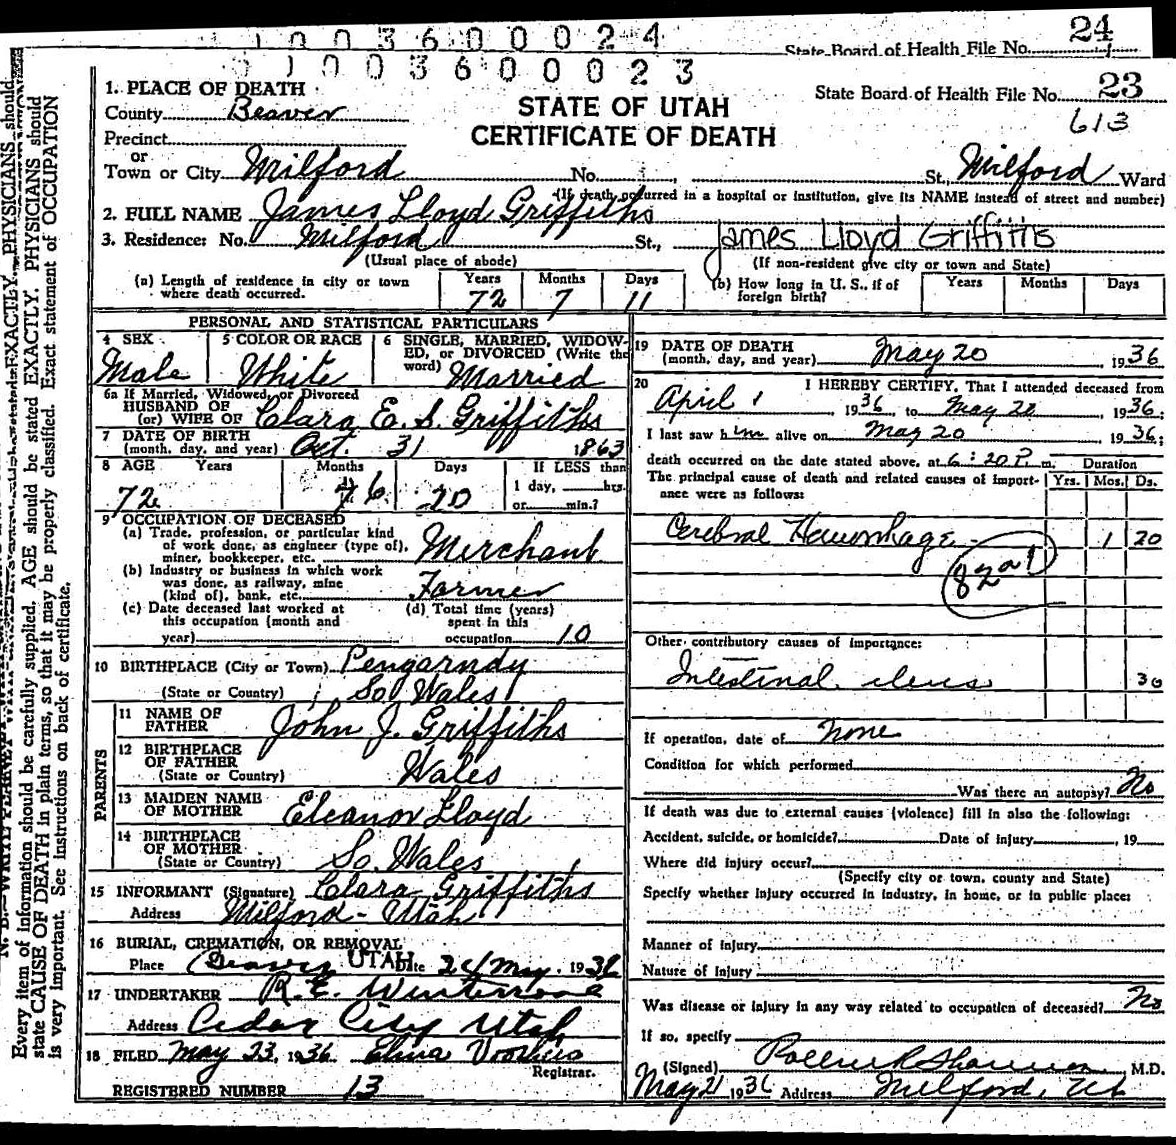 1 0 0 3 6 0 0 0 2 4
24
State Board of Health File No.
0 1 0 0 3 6 0 0 0 2 3
1. PLACE OF DEATH
County Beaver
STATE OF UTAH
CERTIFICATE OF DEATH
State Board of Health File No. 23
613
Precinct
or
Town or City Milford No. St., Milford Ward
(If death occurred in a hospital or institution, give its NAME instead of street and number)
2. FULL NAME James Lloyd Griffiths
3. Residence: No. Milford St., James Lloyd Griffiths
(Usual place of abode) (If non-resident give city or town and State)
(a) Length of residence in city or town where death occurred. Years 72 Months 7 Days 11
(b) How long in U. S., if of foreign birth? Years Months Days
PERSONAL AND STATISTICAL PARTICULARS
4 SEX Male
5 COLOR OR RACE White
6 SINGLE, MARRIED, WIDOW-
ED, or DIVORCED (Write the
word) Married
6a If Married, Widowed, or Divorced
HUSBAND OF
(or) WIFE OF Clara E. S. Griffiths
7 DATE OF BIRTH
(month, day, and year) Oct. 31 1863
8 AGE Years Months Days If LESS than
72 6 20 1 day, hrs.
or min.?
9 OCCUPATION OF DECEASED
(a) Trade, profession, or particular kind
of work done, as engineer (type of),
miner, bookkeeper, etc. Merchant
(b) Industry or business in which work
was done, as railway, mine
(kind of), bank, etc. Farmer
(c) Date deceased last worked at
this occupation (month and
year)
(d) Total time (years)
spent in this
occupation 10
10 BIRTHPLACE (City or Town) Pengarndy
(State or Country) So Wales
PARENTS
11 NAME OF
FATHER John J. Griffiths
12 BIRTHPLACE
OF FATHER
(State or Country) Wales
13 MAIDEN NAME
OF MOTHER Eleanor Lloyd
14 BIRTHPLACE
OF MOTHER
(State or Country) So. Wales
15 INFORMANT (Signature) Clara Griffiths
Address Milford - Utah
16 BURIAL, CREMATION, OR REMOVAL
Place Beaver UTAH Date May 1936
17 UNDERTAKER R. E.
Address Cedar City Utah
18 FILED May 23, 1936. Elma Voorhees
Registrar.
REGISTERED NUMBER 13
19 DATE OF DEATH
(month, day, and year) May 20 1936
20 I HEREBY CERTIFY, That I attended deceased from
April 1, 1936 to May 20, 1936;
I last saw him alive on May 20 1936;
death occurred on the date stated above, at 6:20 P. m. Duration
The principal cause of death and related causes of import-
ance were as follows: Yrs. Mos. Ds.
Cerebral Hemorrhage 1 20
82a1
Other contributory causes of importance:
Intestinal ileus 30
If operation, date of None
Condition for which performed
Was there an autopsy? No
If death was due to external causes (violence) fill in also the following:
Accident, suicide, or homicide? Date of injury , 19
Where did injury occur?
(Specify city or town, county and State)
Specify whether injury occurred in industry, in home, or in public place:
Manner of injury
Nature of injury
Was disease or injury in any way related to occupation of deceased? No
If so, specify
(Signed) M.D.
May 21 1936 Address Milford, Ut
Every item of information should be carefully supplied. AGE should be stated EXACTLY. PHYSICIANS should
state CAUSE OF DEATH in plain terms, so that it may be properly classified. Exact statement of OCCUPATION
is very important. See instructions on back of certificate.